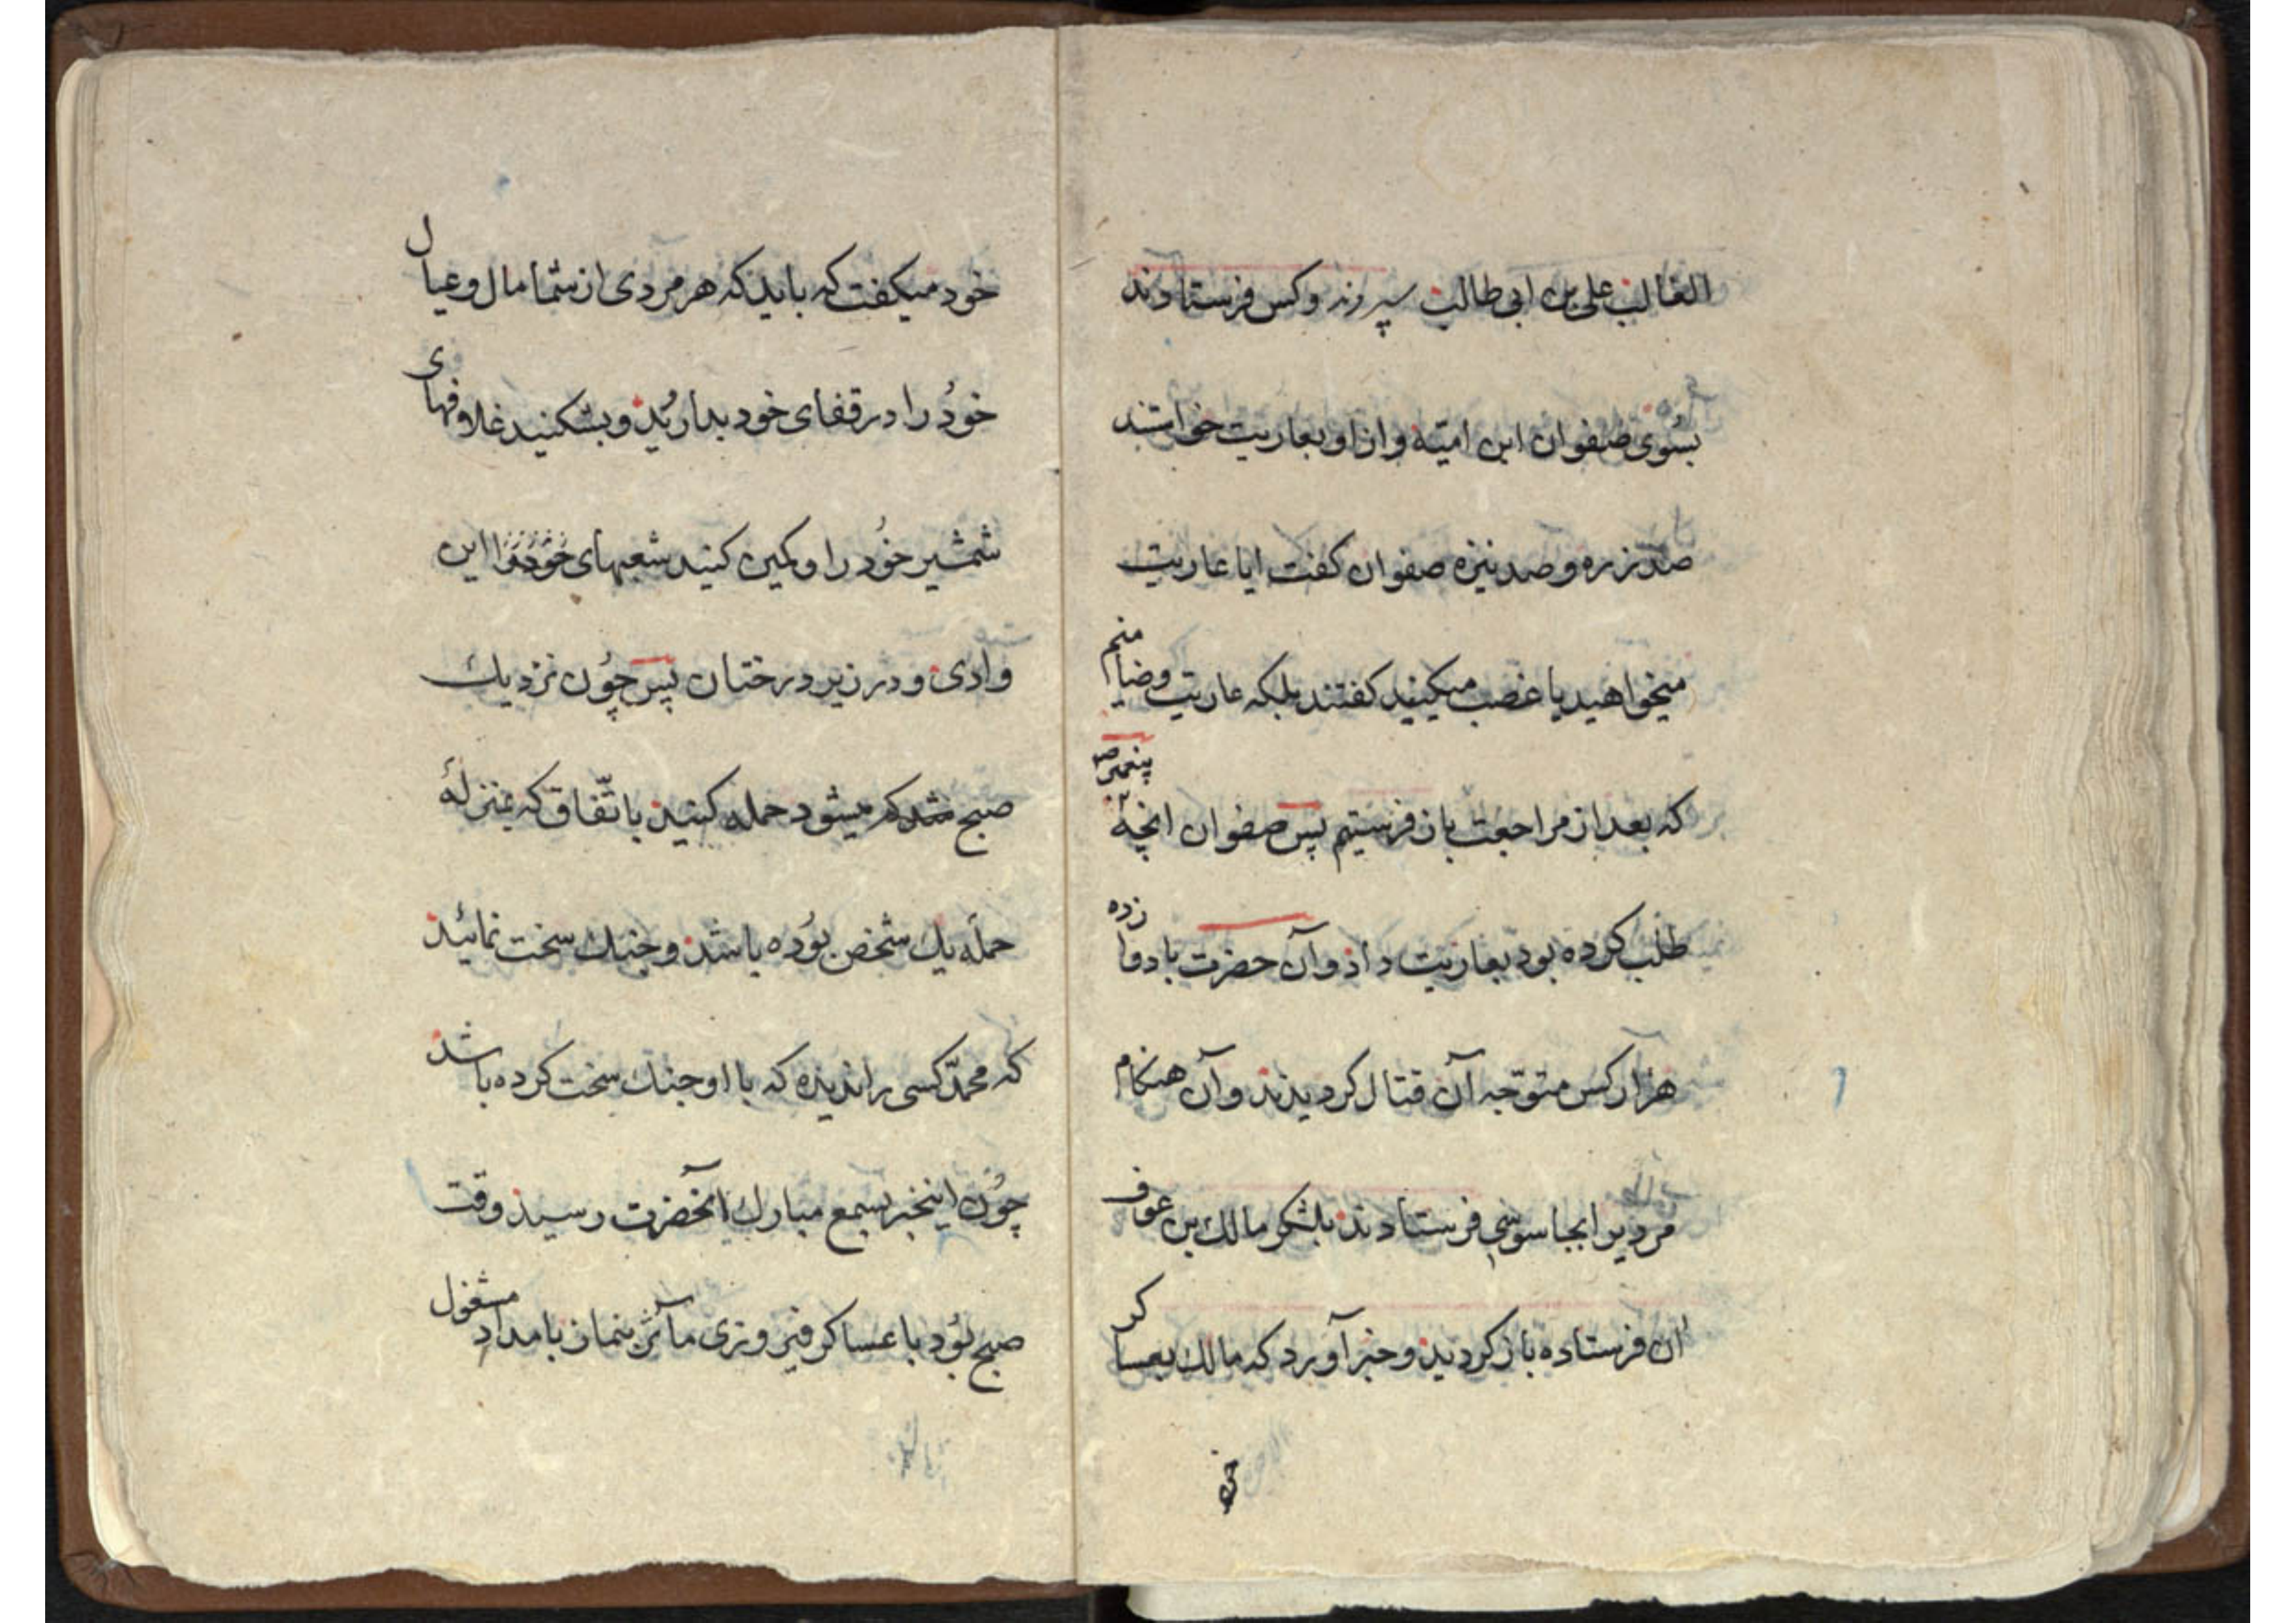 الغالب علی بن ابی طالب سپردند و کس فرستادند
بسُوی صفوان ابن امیّه و از او بعاریت خواستند
صد زره و صد نیزه صفوان کفت ایا عاریت
میخواهید یا غصب میکنید کفتند بلکه عاریت و ضامنیم
که بعد از مراجعت باز فرستیم پس صفوان انچه پیغمبرص
طلب کرده بود بعاریت داد و آن حضرت با دوازده
هزار کس متوّجه آن قتال کردیدند و آن هنکام
مردیرا بجاسوسی فرستادند بلشکر مالک بن عوف
آن فرستاده باز کردید و خبر آورد که مالک بعساکر
خود
خود میکفت که باید که هر مردی از شما مال و عیال
خوُد را در قفای خود بدارید و بشکنید غلافهای
شمشیر خوُد را و کمین کنید شعبهای خود را این
وادی و در زیر درختان پس چوُن نزدیک
صبح شد که میشود حمله کنید باتّفاق که بمنزلهٔ
حمله یک شخص بوُده باشد و جنک سخت نمائید
که محمدّ کسی را ندیده که با او جنک سخت کرده باشد
چوُن اینخبر بسمع مبارک آنحضرت رسید وقت
صبح بوُد با عساکر فیروزی مآثر بنماز بامداد مشغول